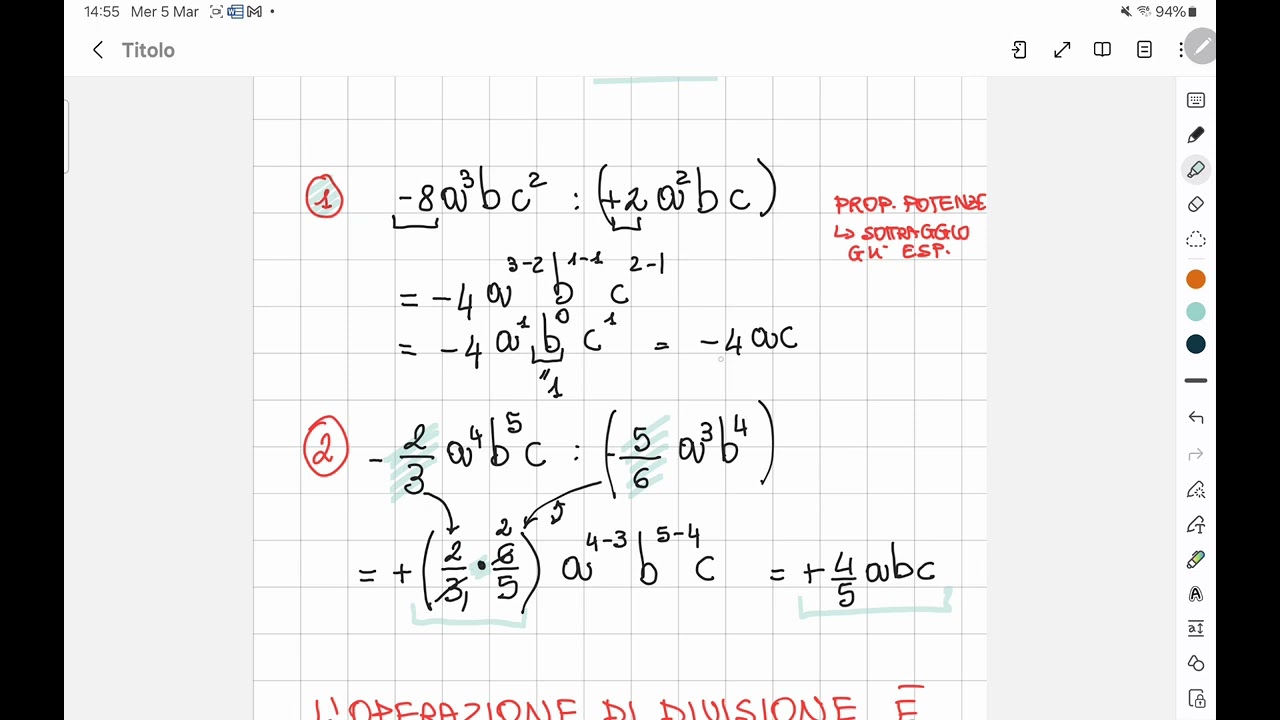 14:55 Mer 5 Mar 94%
Titolo
1 -8a³bc² : (+2a²bc)
PROP. POTENZE
↳ SOTTRAGGO
GLI ESP.
= -4 a³⁻² b¹⁻¹ c²⁻¹
= -4 a¹ b⁰ c¹ = -4ac
"1
2 - 2/3 a⁴b⁵c : (- 5/6 a³b⁴)
= + (2/3 · 6/5) a⁴⁻³ b⁵⁻⁴ c = + 4/5 abc
L'OPERAZIONE DI DIVISIONE E